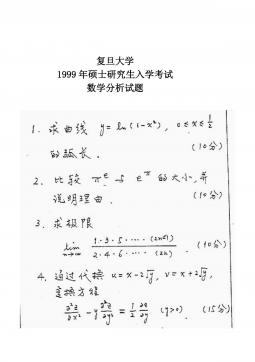 复旦大学
1999 年硕士研究生入学考试
数学分析试题
1. 求曲线 y = ln(1-x²), 0≤x≤1/2
的弧长. (10分)
2. 比较 π^e 与 e^π 的大小, 并
说明理由. (10分)
3. 求极限
lim n→∞ 1·3·5·····(2n-1) / 2·4·6·····(2n) (10分)
4. 通过代换 u = x-2√y, v = x+2√y,
变换方程
∂²z/∂x² - y ∂²z/∂y² = 1/2 ∂z/∂y (y>0) (15分)